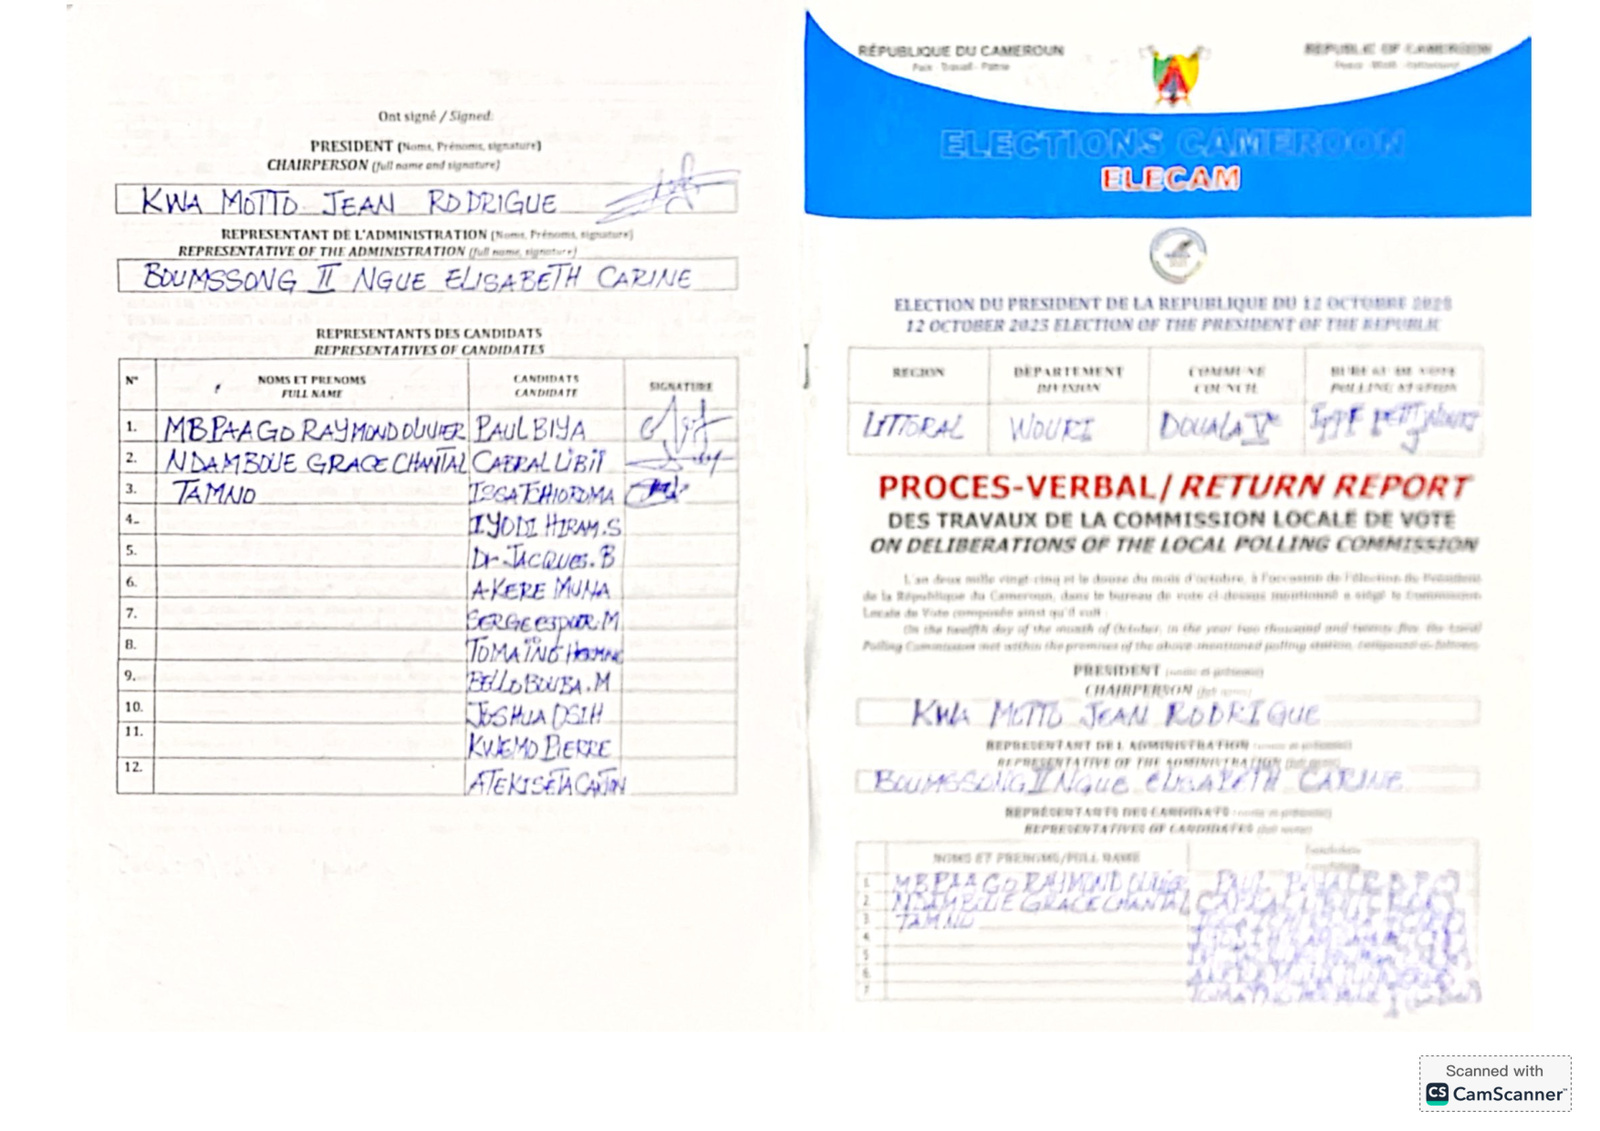 Ont signé / Signed:
PRESIDENT (Noms, Prénoms, signature)
CHAIRPERSON (full name and signature)
KWA MOTTO JEAN RODRIGUE
REPRESENTANT DE L'ADMINISTRATION (Noms, Prénoms, signature)
REPRESENTATIVE OF THE ADMINISTRATION (full name, signature)
BOUMSSONG II NGUE ELISABETH CARINE
REPRESENTANTS DES CANDIDATS
REPRESENTATIVES OF CANDIDATES
N° NOMS ET PRENOMS FULL NAME CANDIDATS CANDIDATE SIGNATURE
1. MBPAAGO RAYMOND OLIVIER PAUL BIYA
2. NDAMBOUE GRACE CHANTAL CABRAL LIBII
3. TAMNO ISSA TCHIROMA
4. IYODI HIRAM.S
5. Dr JACQUES.B
6. AKERE MUNA
7. SERGE ESPOIR.M
8. TOMAÏNO HERMINE
9. BELLO BOUBA.M
10. JOSHUA OSIH
11. KWEMO PIERRE
12. ATEKI SETA CAXTON
RÉPUBLIQUE DU CAMEROUN
Paix - Travail - Patrie
REPUBLIC OF CAMEROON
Peace - Work - Fatherland
ELECTIONS CAMEROON
ELECAM
ELECTION DU PRESIDENT DE LA REPUBLIQUE DU 12 OCTOBRE 2025
12 OCTOBER 2025 ELECTION OF THE PRESIDENT OF THE REPUBLIC
REGION DÉPARTEMENT DIVISION COMMUNE COUNCIL BUREAU DE VOTE POLLING STATION
LITTORAL WOURI DOUALA Ve PETIT WOURI
PROCES-VERBAL/ RETURN REPORT
DES TRAVAUX DE LA COMMISSION LOCALE DE VOTE
ON DELIBERATIONS OF THE LOCAL POLLING COMMISSION
L'an deux mille vingt-cinq et le douze du mois d'octobre, à l'occasion de l'élection du Président
de la République du Cameroun, dans le bureau de vote ci-dessus mentionné a siégé la Commission
Locale de Vote composée ainsi qu'il suit :
On the twelfth day of the month of October, in the year two thousand and twenty-five, the Local
Polling Commission met within the premises of the above-mentioned polling station, composed as follows:
PRESIDENT
CHAIRPERSON
KWA MOTTO JEAN RODRIGUE
REPRESENTANT DE L'ADMINISTRATION
REPRESENTATIVE OF THE ADMINISTRATION
BOUMSSONG II NGUE ELISABETH CARINE
REPRÉSENTANTS DES CANDIDATS
REPRESENTATIVES OF CANDIDATES
NOMS ET PRENOMS/FULL NAME
1 MBPAAGO RAYMOND OLIVIER PAUL
2 NDAMBOUE GRACE CHANTAL
3 TAMNO
4
5
6
7
Scanned with
CS CamScanner